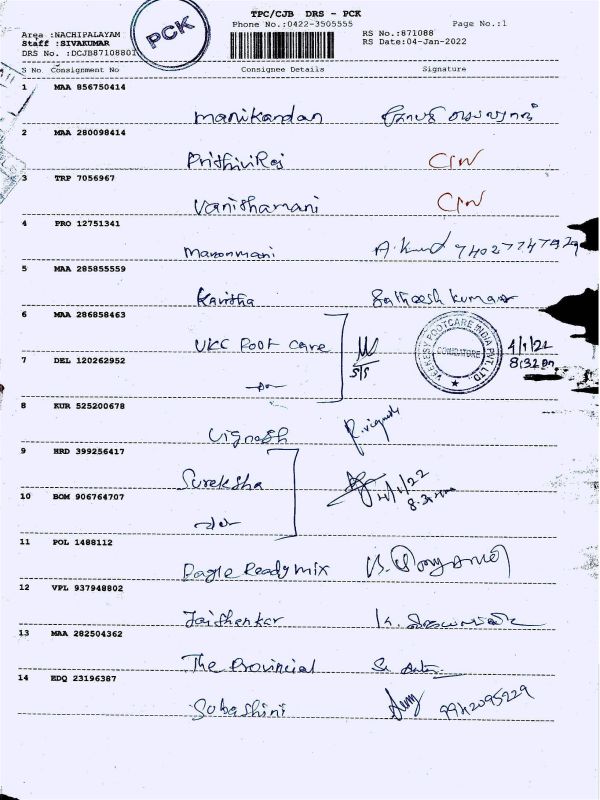 TPC/CJB DRS - PCK
Phone No.:0422-3505555 Page No.:1
Area :NACHIPALAYAM RS No.:871088
Staff :SIVAKUMAR RS Date:04-Jan-2022
DRS No. :DCJB87108801
PCK
S No Consignment No Consignee Details Signature
1 MAA 856750414
manikandan
2 MAA 280098414
Prithivi Raj
3 TRP 7056967
Vanithamani
4 PRO 12751341
Manonmani 74027747929
5 MAA 285855559
Kavitha Satheesh kumar
6 MAA 286858463
VKC Foot Care
VEEKESY FOOTCARE INDIA PVT. LTD.
COIMBATORE
4/1/22
8:32 pm
7 DEL 120262952
-do-
8 KUR 525200678
Vignesh R.vignesh
9 HRD 399256417
Sureksha 4/1/22
10 BOM 906764707
-do-
11 POL 1488112
Eagle Readymix
12 VPL 937948802
Jaishenkar
13 MAA 282504362
The Provincial
14 EDQ 23196387
Subashini 9942095229